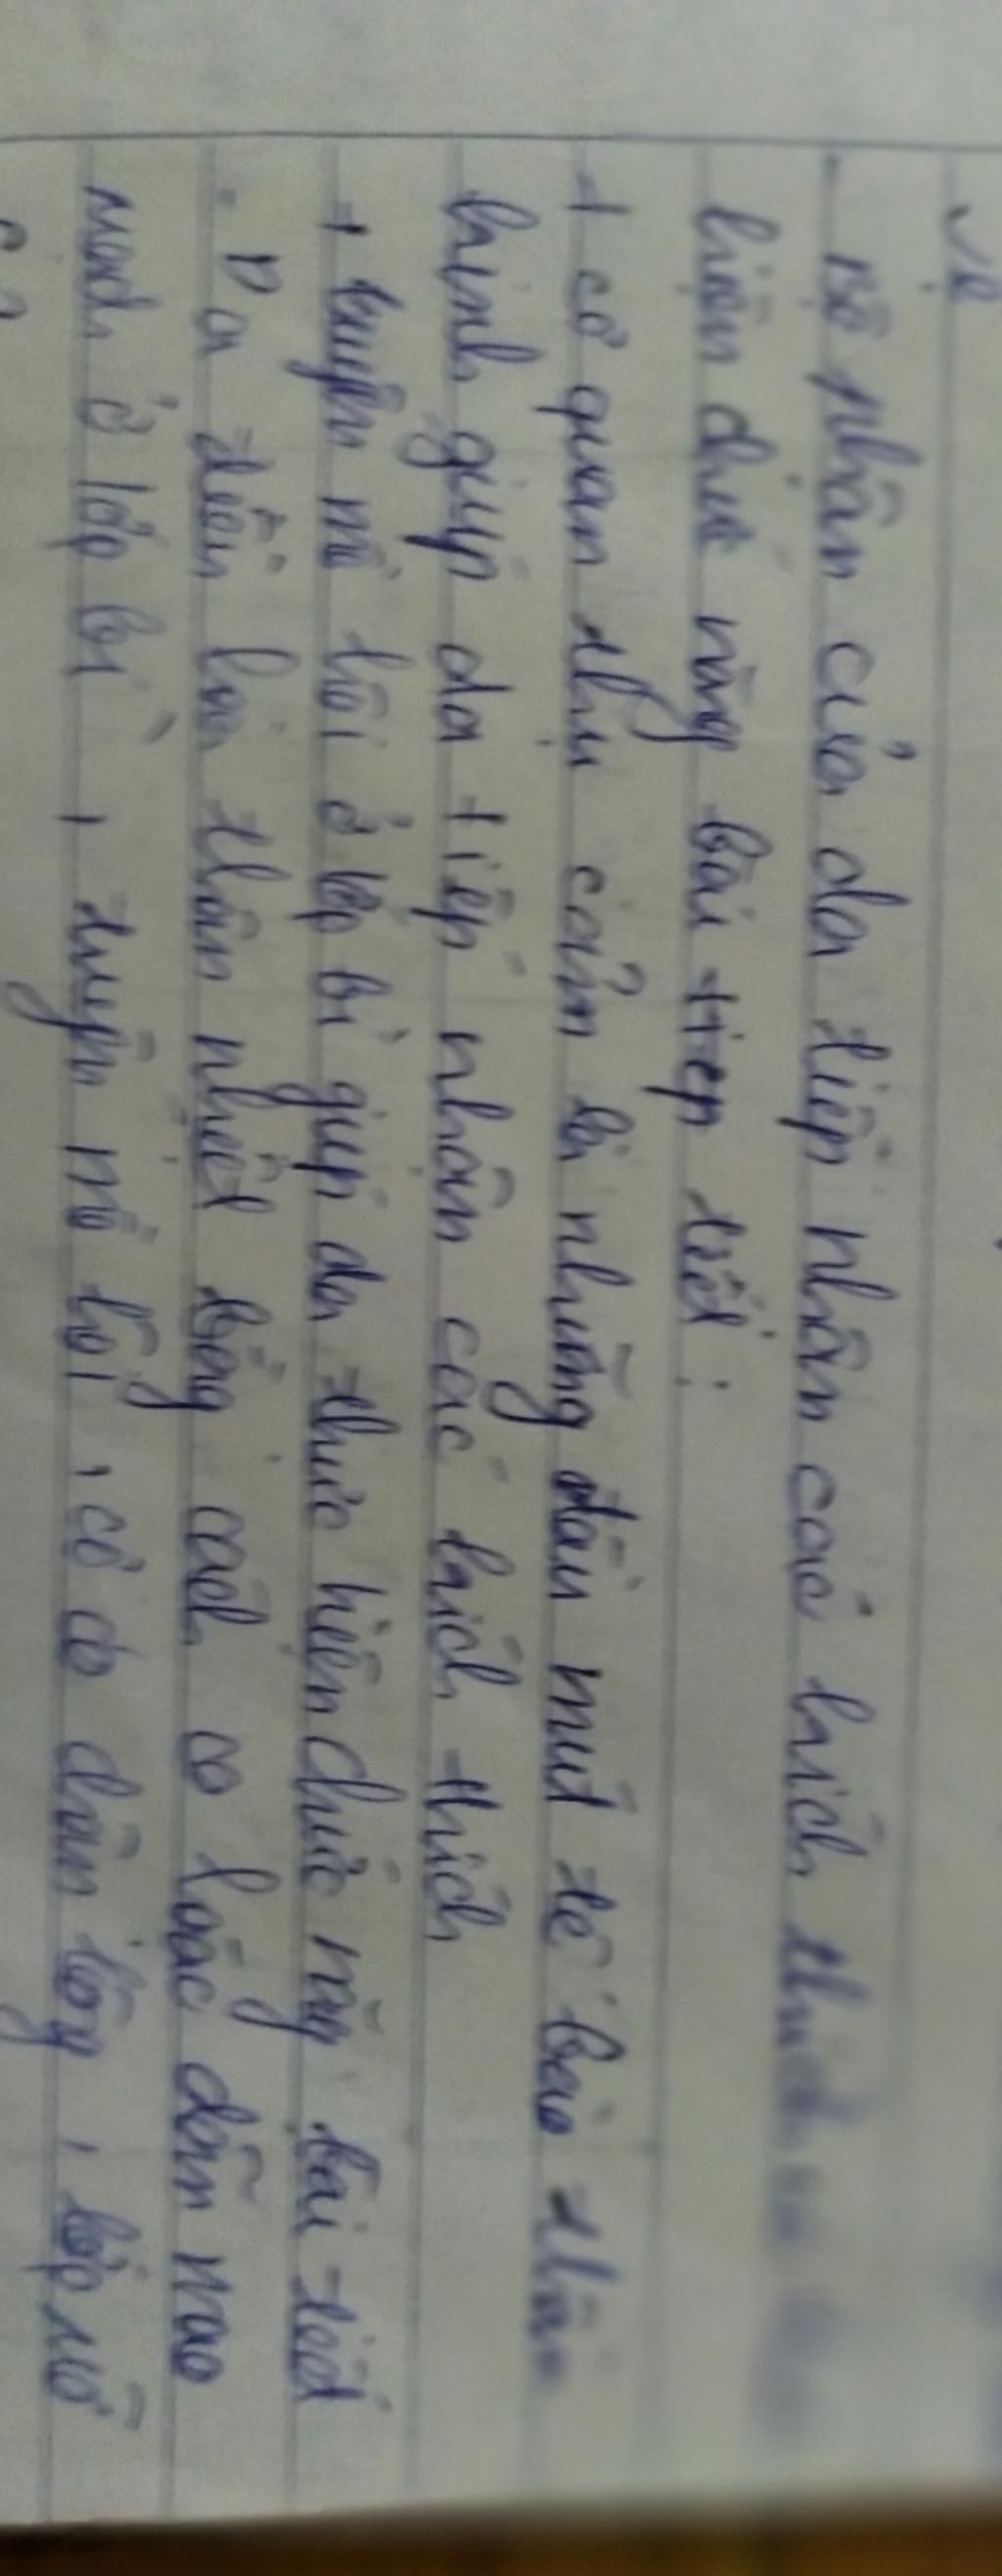 vệ
- Bộ phận của da tiếp nhận các kích thích
hiện chức năng bài tiếp tiết:
+ cơ quan thụ cảm là những đầu mút tế bào thần
kinh giúp da tiếp nhận các kích thích
+ tuyến mồ hôi ở lớp bì giúp da thực hiện chức năng bài tiết
- Da điều hòa thân nhiệt bằng cách co hoặc dãn mao
mạch ở lớp bì, tuyến mồ hôi, cơ co chân lông, lớp mỡ